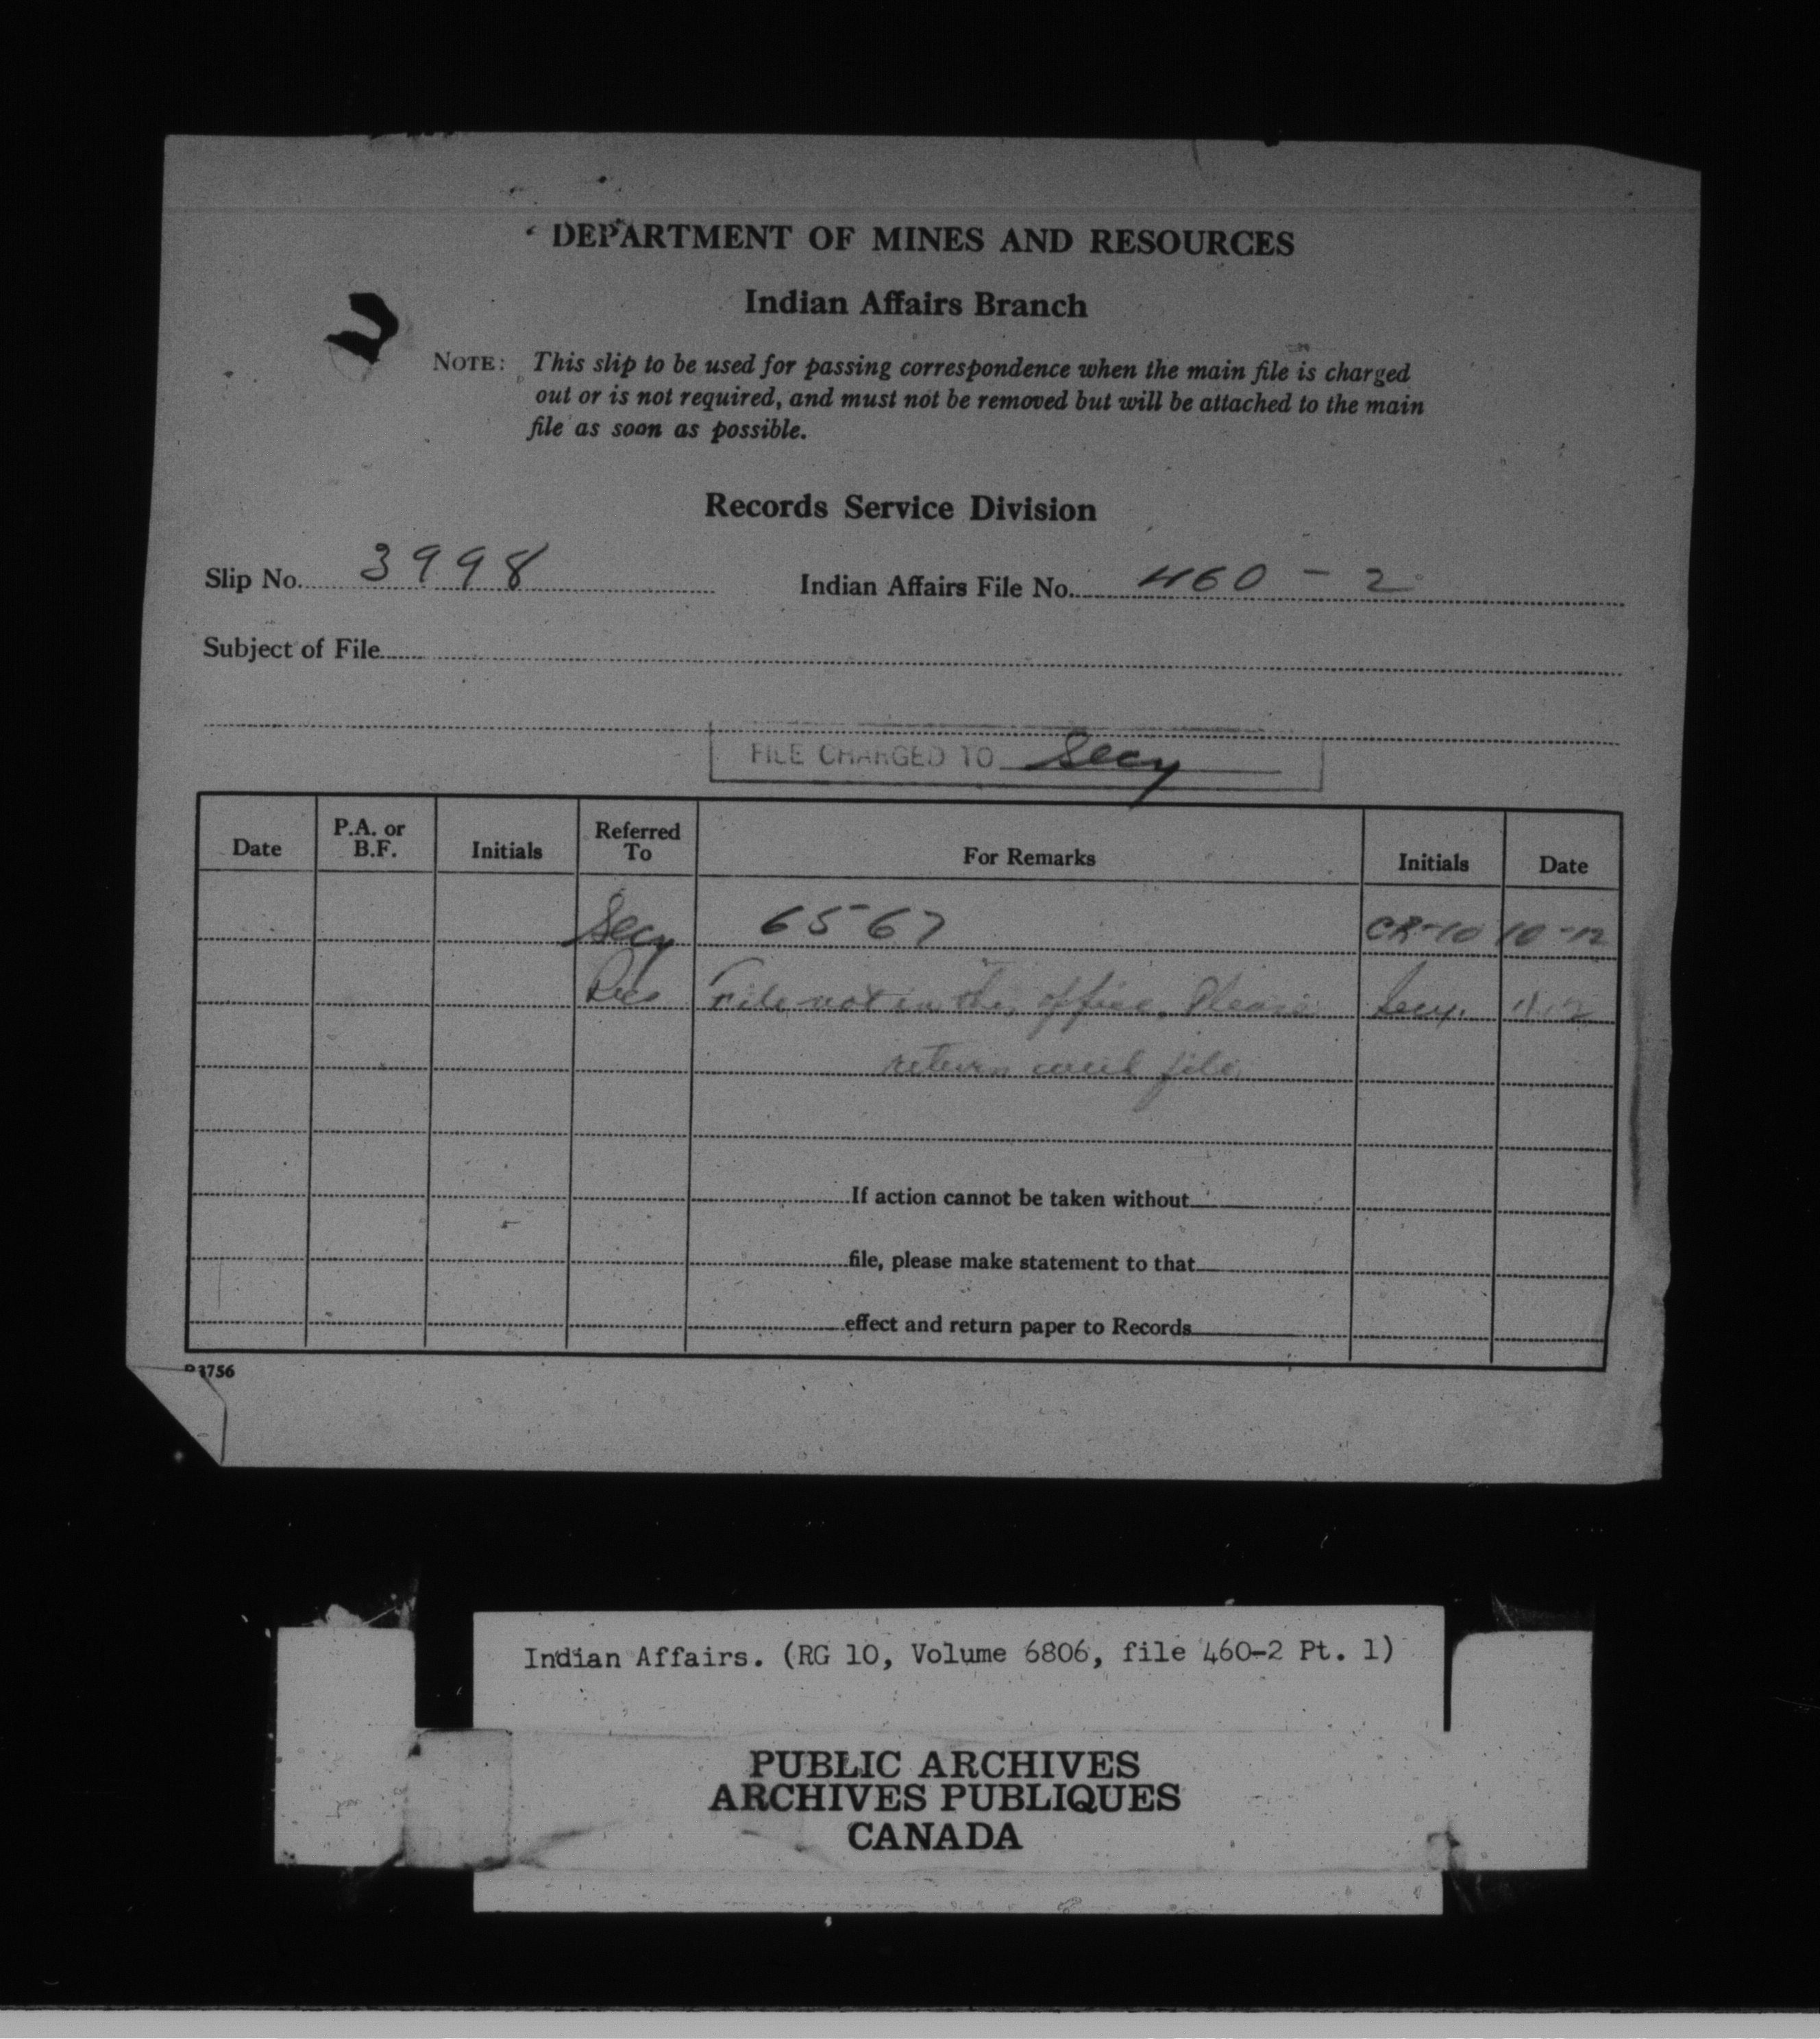 DEPARTMENT OF MINES AND RESOURCES
Indian Affairs Branch
NOTE: This slip to be used for passing correspondence when the main file is charged
out or is not required, and must not be removed but will be attached to the main
file as soon as possible.
Records Service Division
Slip No. 3998 Indian Affairs File No. 460 - 2
Subject of File
FILE CHARGED TO Secy
Date P.A. or B.F. Initials Referred To For Remarks Initials Date
Secy 6567 CR-10 10-12
File not in the office. Please Secy. 11.12
return with file
If action cannot be taken without
file, please make statement to that
effect and return paper to Records
3756
Indian Affairs. (RG 10, Volume 6806, file 460-2 Pt. 1)
PUBLIC ARCHIVES
ARCHIVES PUBLIQUES
CANADA